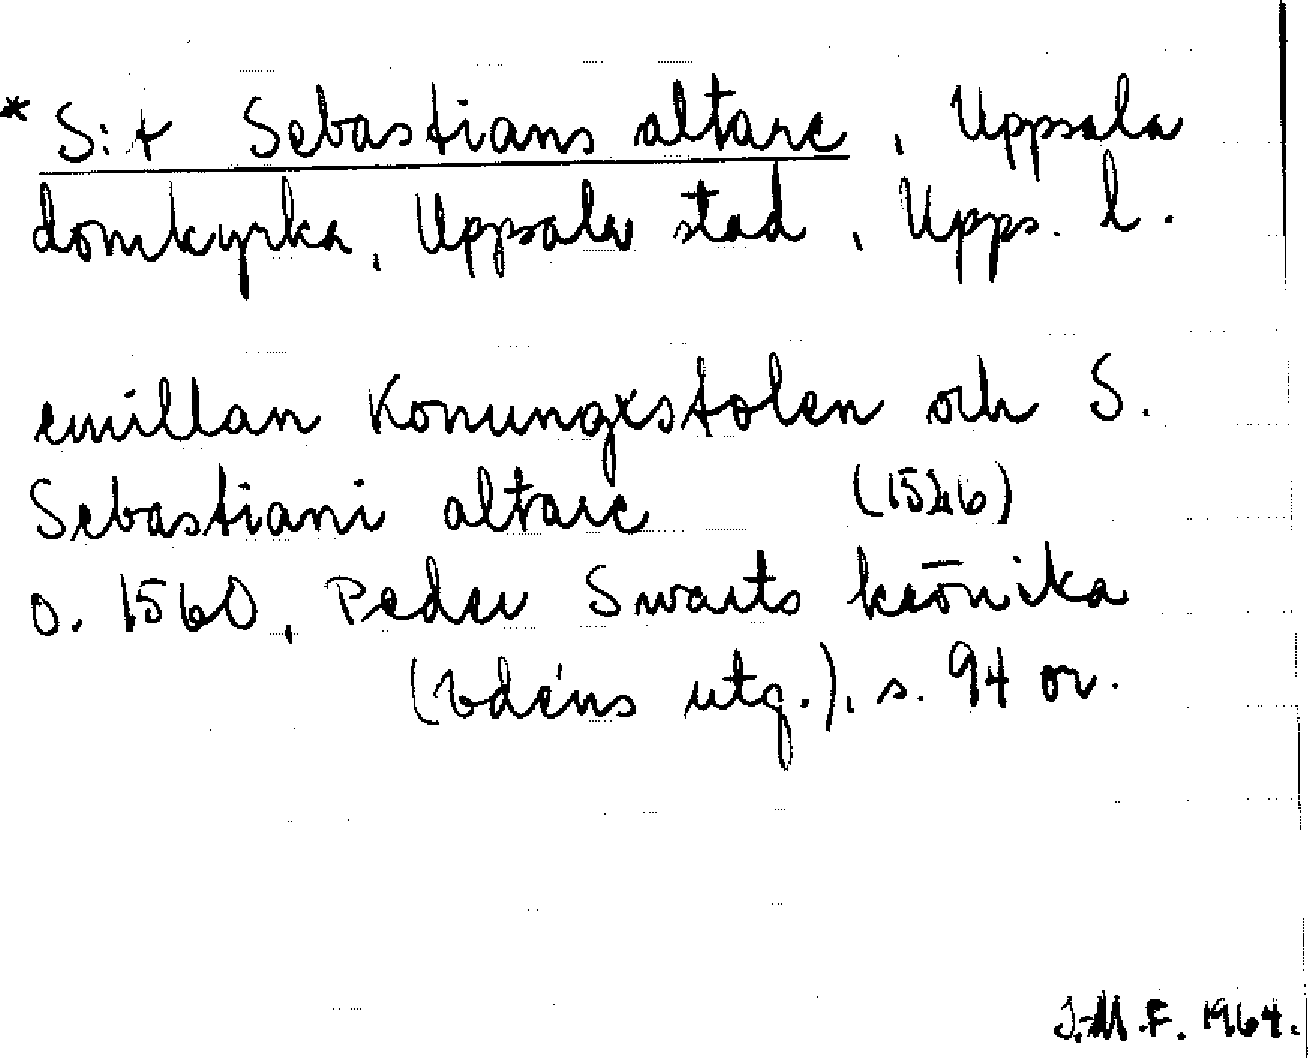 * S:t Sebastians altare, Uppsala
domkyrka, Uppsala stad, Upps. l.
emillan Konungxstolen och S.
Sebastiani altare (1526)
o. 1560, Peder Swarts krönika
(Edéns utg.), s. 94 or.
J.M.F. 1964.